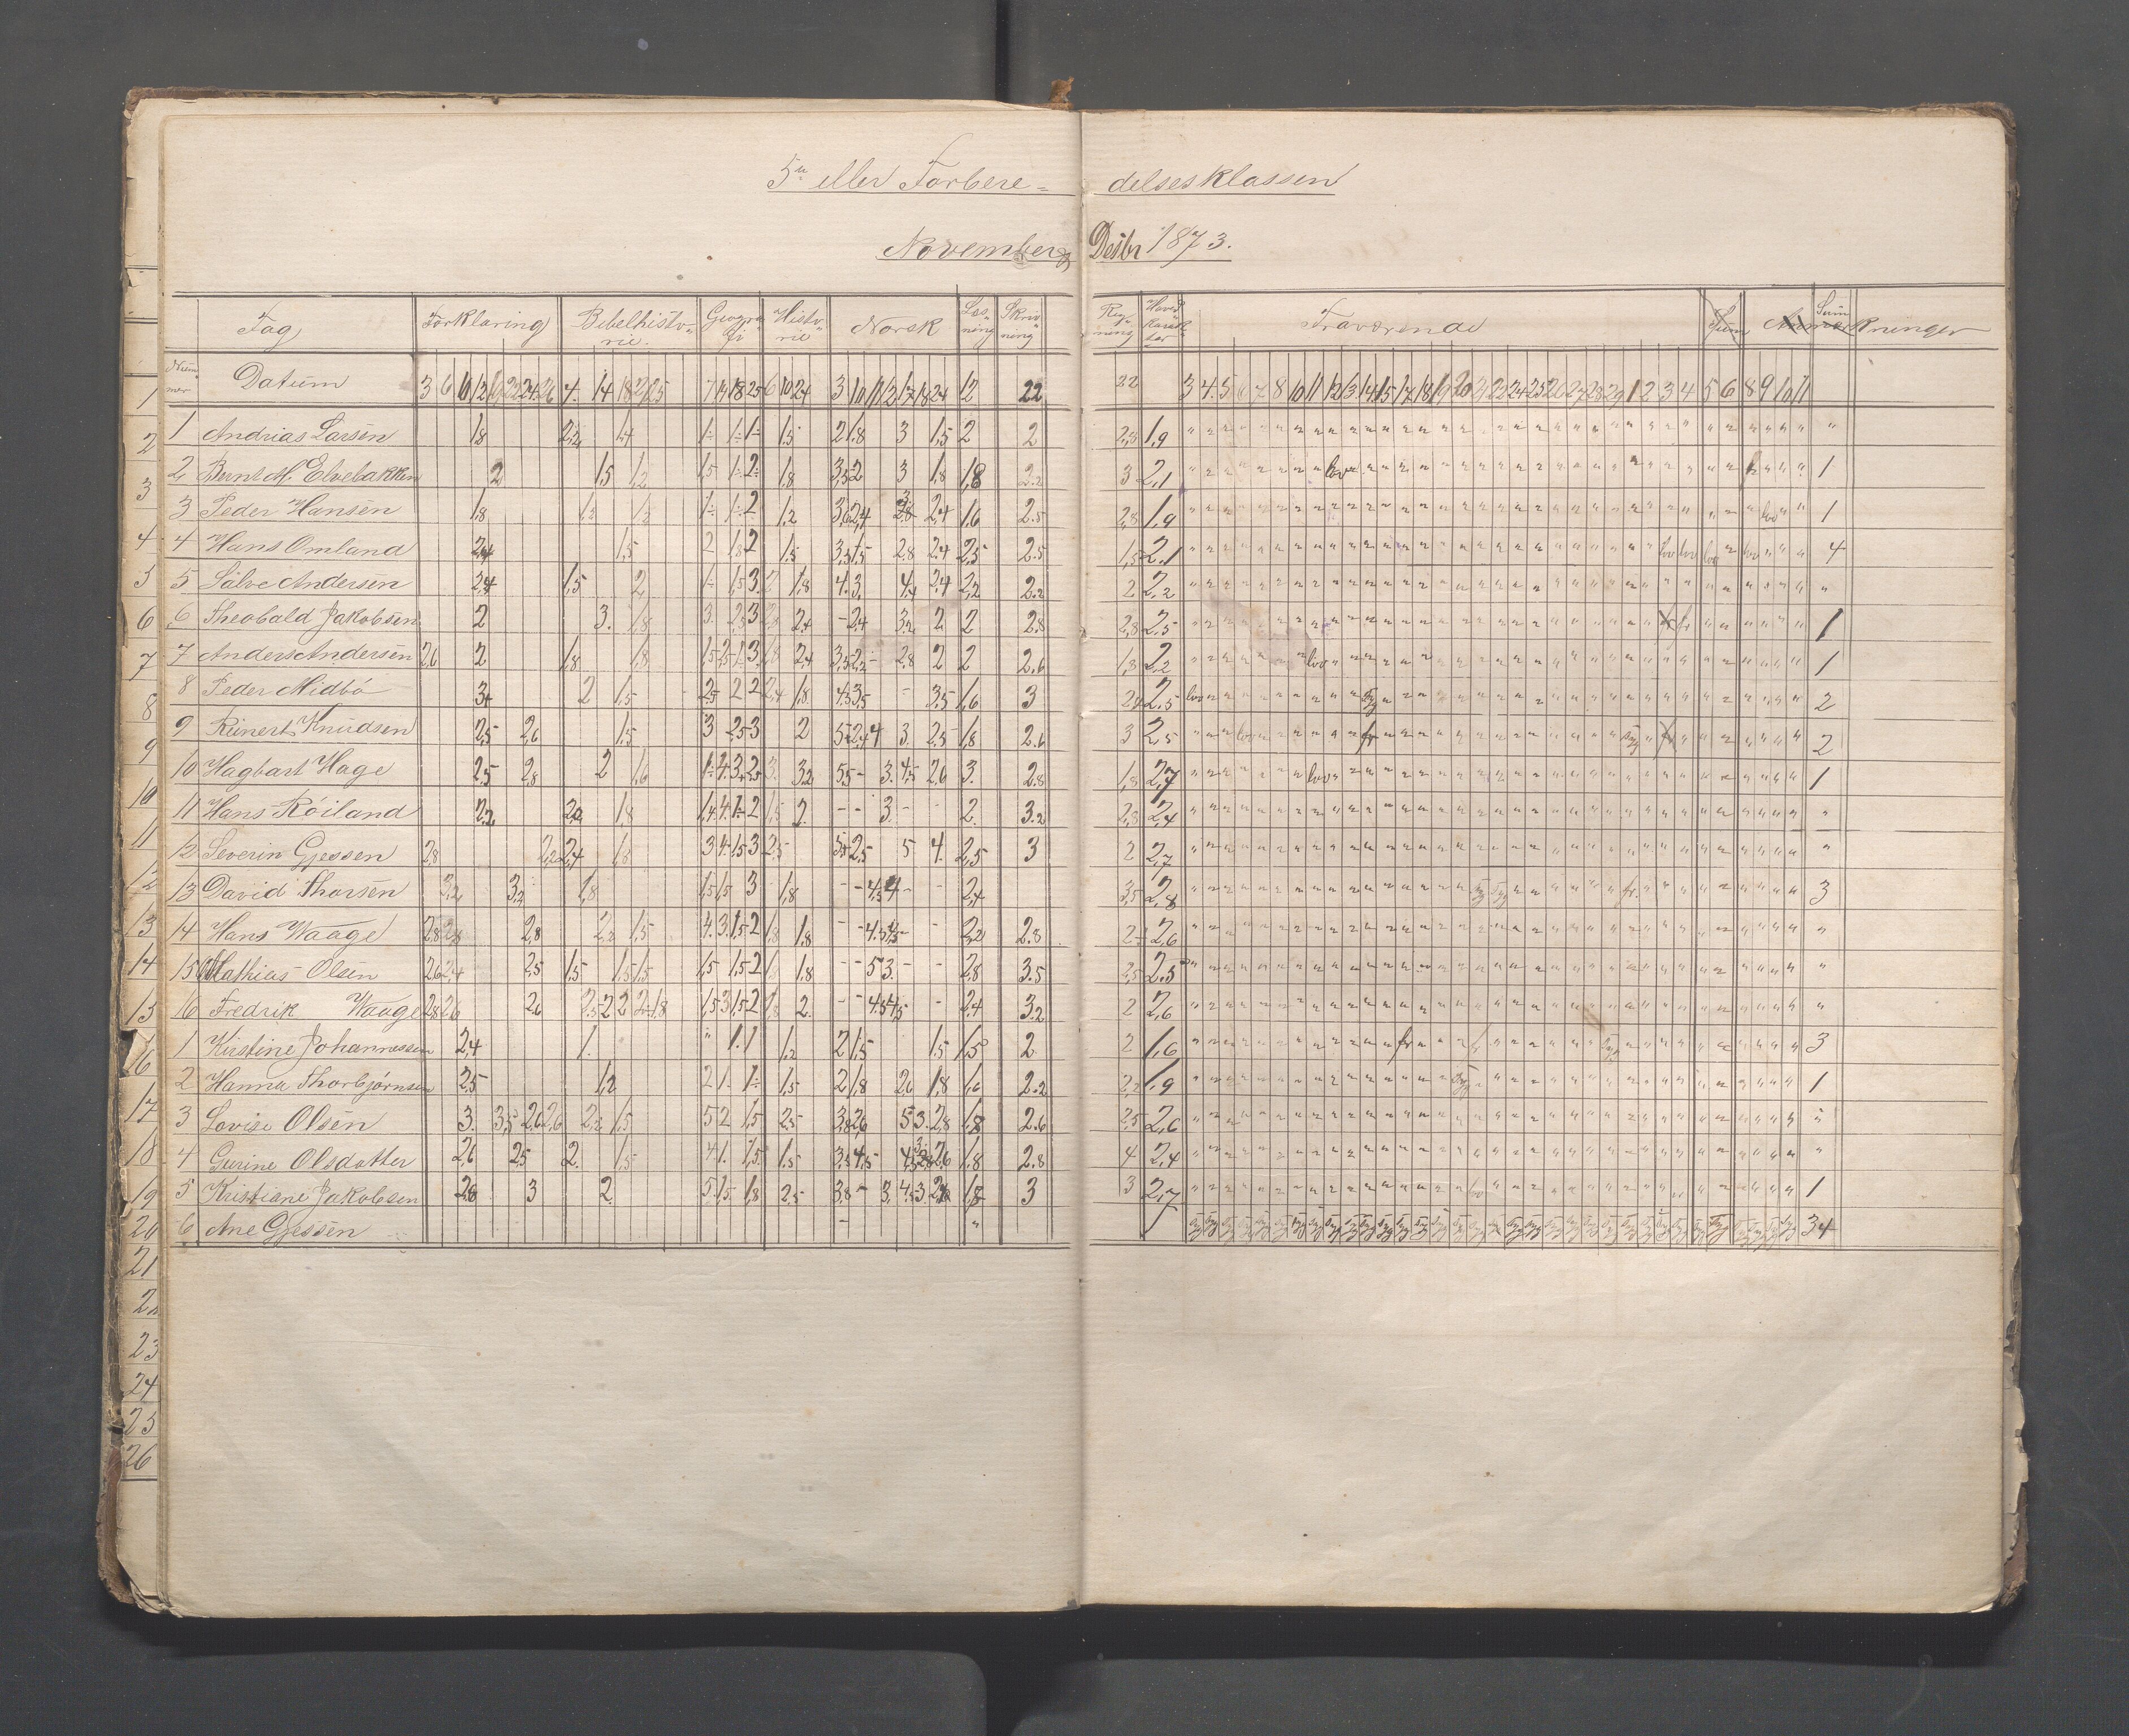 5te eller Forbere= delsesklassen
November & Desbr 1873.
Fag Forklaring Bibelhisto- rie. Geogra- fi Histo- rie Norsk Læs- ning Skriv- ning Reg- ning Hoved karak- ter Fraværende Sum Anmærkninger Sum
Num- mer Datum 3 6 10 12 19 22 24 26 4. 14 18 21 25 7 14 18 25 6 10 24 3 10 11 12 17 18 24 12 22 22 3 4 5 6 7 8 10 11 12 13 14 15 17 18 19 20 21 22 24 25 26 27 28 29 1 2 3 4 5 6 8 9 10 11
1 Andrias Larsen 1,8 2,2 1,4 1÷ 1÷ 1÷ 1,5 2 1,8 3 1,5 2 2 2,3 1,9 "
2 Bernt M. Elvebakken 2 1,5 1,2 1,5 1÷ 2÷ 1,8 3,5 2 3 1,8 1,8 2.2 3 2,1 lov 1
3 Peder Hansen 1,8 1,2 1,2 1÷ 1÷ 2 1,2 3,6 2,4 2,4 1,6 2.5 2,8 1,9 lov 1
4 Hans Omland 2,4 1,5 2 1,8 2 1,5 3,5 1,5 2,8 2,4 2,5 2.5 1,5 2.1 lov lov lov lov 4
5 Salve Andersen 2,4 1,5 2 1÷ 1,5 3. 2 1,8 4. 3. 4,4 2,4 2,2 2.2 2 2,2 "
6 Theobald Jakobsen 2 3. 1,8 3. 2,5 3 2,8 2,4 - 2,4 3,2 2 2 2.8 2,8 2,5 fr 1
7 Anders Andersen 2,6 2 1,8 1,8 1,5 2,5 1÷ 3. 1,8 2,4 3,5 2,2 - 2,8 2 2 2.6 1,8 2,2 lov 1
8 Peder Midbö 3+ 2 1,5 2,5 2 2 2,4 1,8 4,5 3,5 - 3,5 1,6 3 2,4 2.5 lov Syg 2
9 Reinert Knudsen 2,5 2,6 1,5 3 2,5 3 2 5÷ 2,4 4 3. 2,5 1,8 2.6 3 2,5 lov fr syg 2
10 Hagbart Hage 2,5 2,8 2 1,6 1÷ 4. 3,2 2,5 3. 3,2 5,5 - 3. 4,5 2,6 3. 2.8 1,8 2,7 lov 1
11 Hans Röiland 2,2 2,2 1,8 1,4 4. 1÷ 2 1,5 2. - - 3. - - 2. 3.2 2,8 2,4 "
12 Severin Gjessen 2,8 2,2 2,4 1,8 3 4. 1,5 3 2,5 3,5 2,5 5 4. 2,5 3 2 2,7 "
13 David Thorsen 2,2 3,2 1,8 1,5 1,5 3 1,8 - - 4,5 4 - - 2,4 3,5 2,8 syg syg fr. 3
14 Hans Waage 2,8 2,8 2,8 2,2 1,5 4. 3. 1,5 2 1,8 1,8 - - 4,5 4,5 - - 2,2 2.8 2÷ 2,6 "
15 Mathias Olsen 2,6 2,4 2,5 1,5 1,5 1,5 1,5 1,5 2 1,8 1,8 - - 5 3. - - 2,8 3.5 2,5 2.5 "
16 Fredrik Waage 2,8 2,6 2,6 2,5 2 2 2÷ 1,8 1,5 3 1,5 2 1,8 2. - - 4,5 4,5 - 2,4 3.2 2 2,6 "
1 Kirstine Johannessen 2,4 1. " 1. 1 1,2 2 1,5 1,5 1,5 2 2 1,6 fr fr syg 3
2 Hanna Thorbjörnsen 2,5 1,2 2 1. 1÷ 1,5 2 1,8 2,6 1,8 1,6 2.2 2,2 1,9 syg 1
3 Lovise Olsen 3. 3,5 2,6 2,6 2,2 1,5 5 2 1,5 2,5 3,8 2,6 5 3. 2,8 1,8 2.6 2,5 2,6 "
4 Gurine Olsdatter 2,6 2,5 2. 1,5 4 1. 1,5 1,5 3,5 4,5 4,5 2,6 1,8 2.8 4 2,4 "
5 Kristiane Jakobsen 2,8 3 2. 5 1,5 1,8 2,5 3,8 - 3. 4,5 3 1,8 3 3 2,7 lov 1
6 Ane Gjessen - " syg syg syg syg syg syg syg syg syg syg syg syg syg syg syg syg syg syg syg syg syg syg syg syg syg syg syg syg syg syg syg syg syg syg 34
1
2
3
4
5
6
7
8
9
10
11
12
13
14
15
16
17
18
19
20
21
22
23
24
25
26